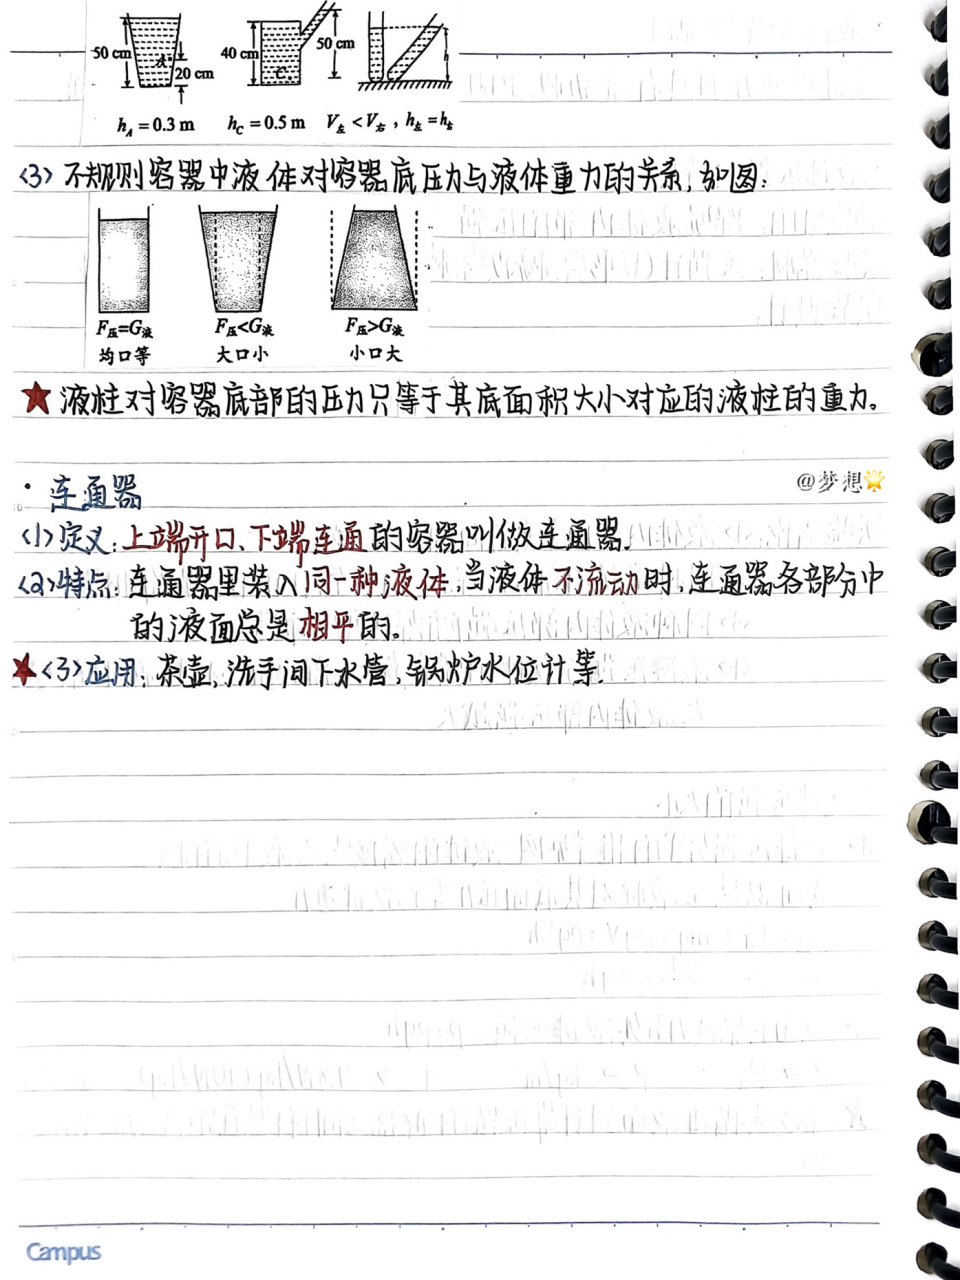 50 cm A 20 cm 40 cm C 50 cm h
h_A = 0.3 m h_C = 0.5 m V左 < V右，h左 = h右
(3) 不规则容器中液体对容器底压力与液体重力的关系，如图：
F压=G液 F压<G液 F压>G液
均口等 大口小 小口大
★ 液柱对容器底部的压力只等于其底面积大小对应的液柱的重力。
· 连通器
@梦想🌟
(1) 定义：上端开口、下端连通的容器叫做连通器.
(2) 特点：连通器里装入同一种液体，当液体不流动时，连通器各部分中
的液面总是相平的。
★(3) 应用：茶壶，洗手间下水管，锅炉水位计等.
Campus